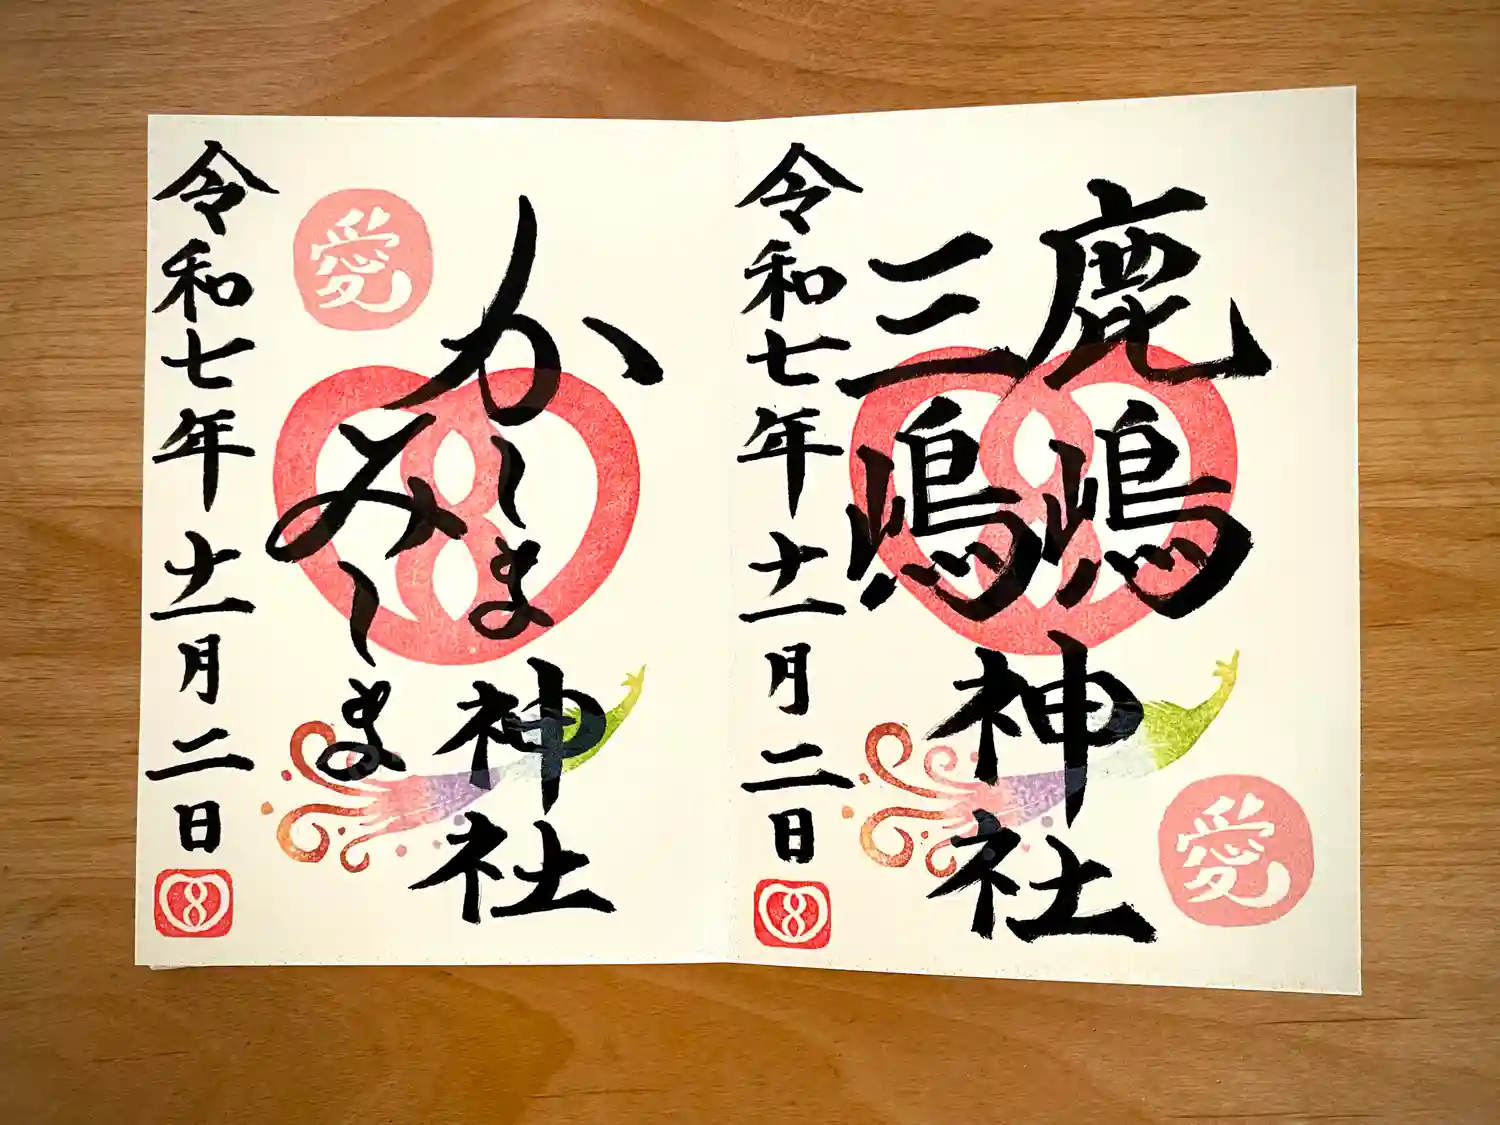 鹿嶋
三嶋
神社
令和七年十一月二日
愛
かしま
みしま
神社
令和七年十一月二日
愛